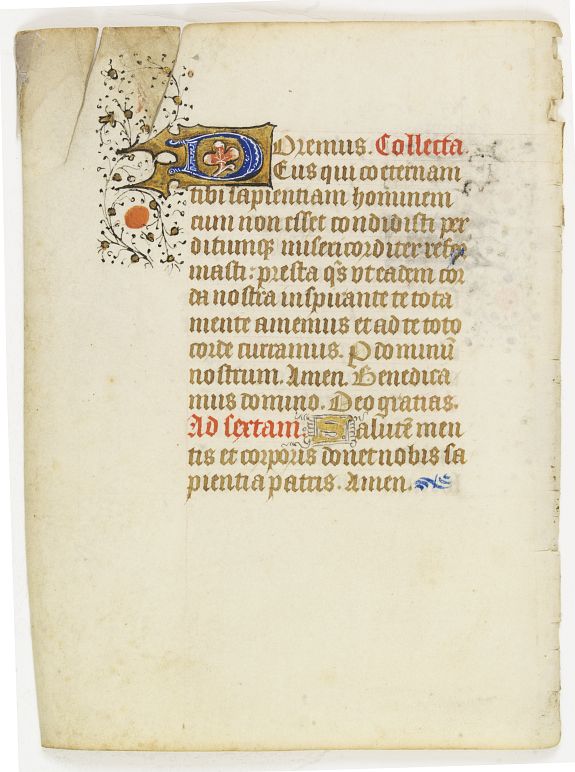 Oremus. Collecta.
DEus qui coeternam
tibi sapientiam hominem
cum non esset condidisti per
ditumq₃ misericorditer refor
masti: presta q̄s vt eadem cor
da nostra inspirante te tota
mente amemus et ad te toto
corde curramus. P dominū
nostrum. Amen. Benedica
mus domino. Deo gratias.
Ad sextam. Salutē men
tis et corporis donet nobis sa
pientia patris. Amen.